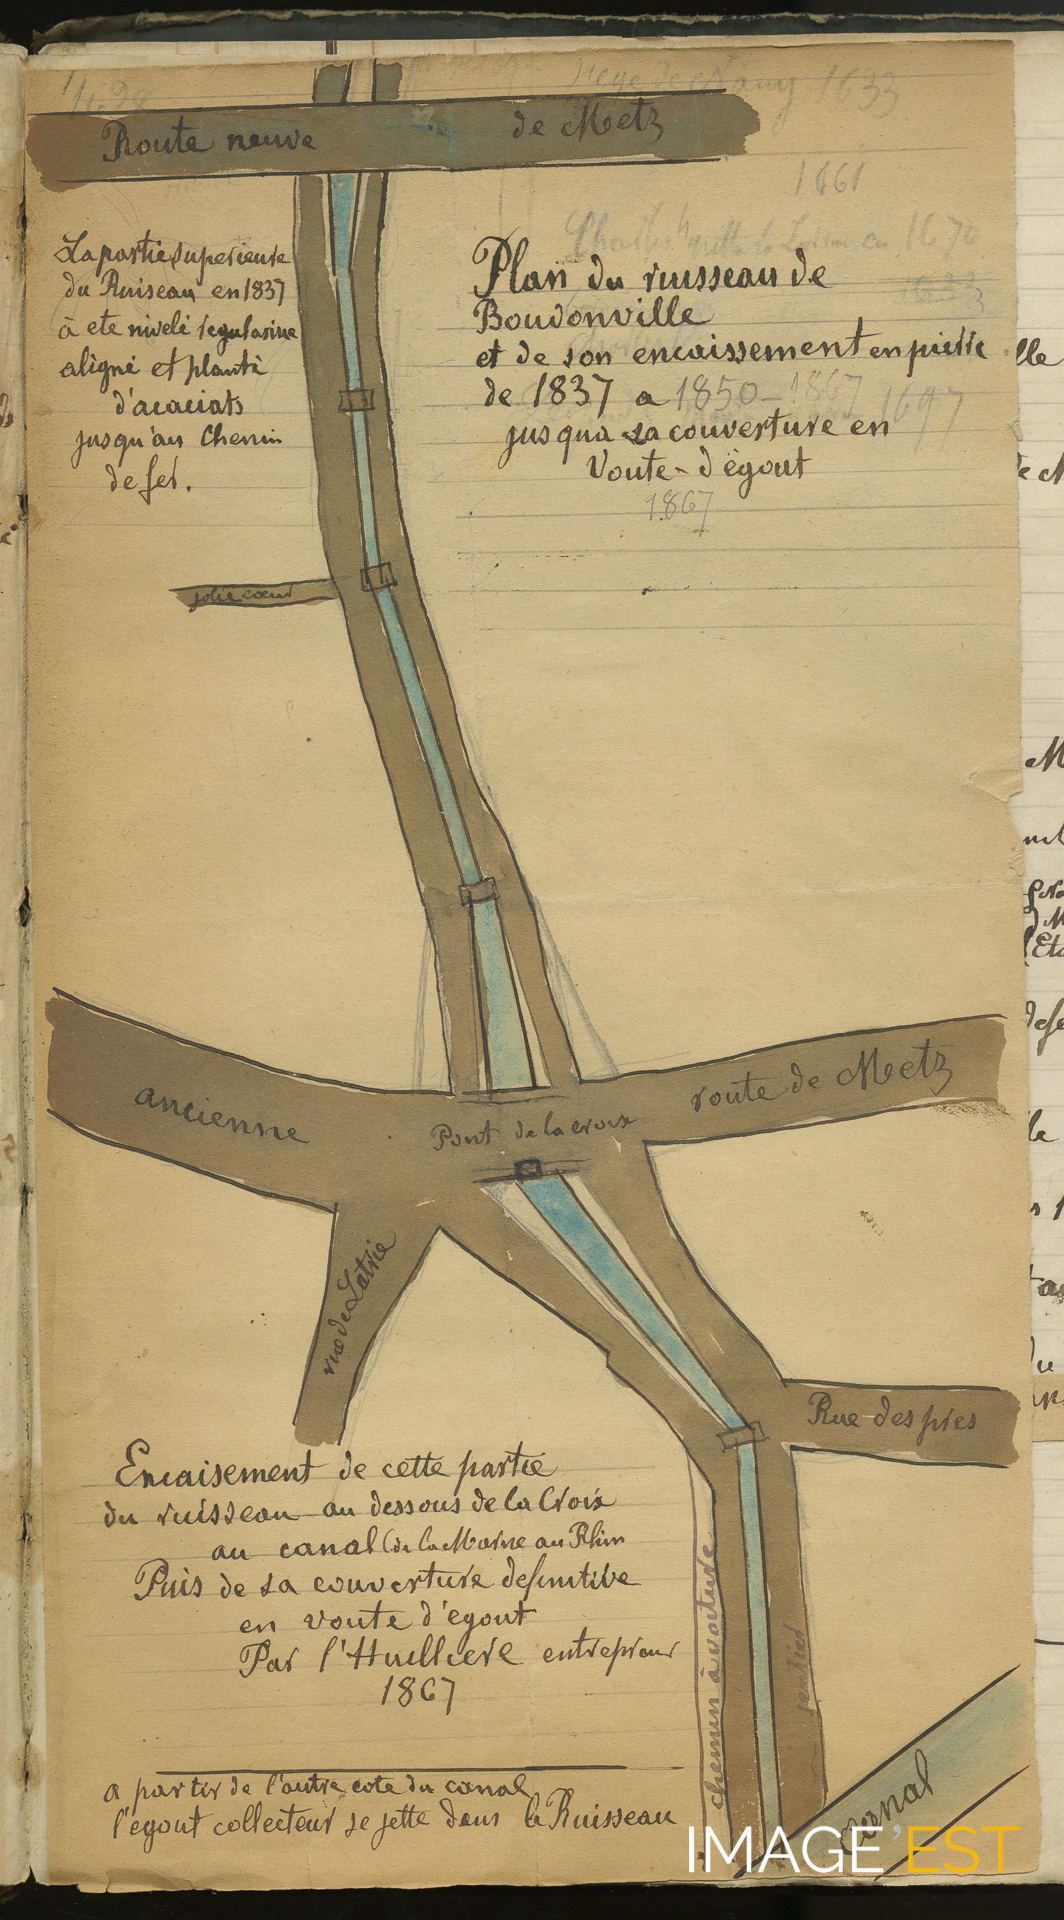 1698
1633
Route neuve de Metz
1661
1670
La partie superieure
du Ruiseau en 1837
à ete nivelé regularise
aligné et planté
d'acaciats
jusqu'au Chemin
de fer.
Plan du ruisseau de
Boudonville
et de son encaissement en pierre
de 1837 a 1850 - 1867
1697
jusqua sa couverture en
Voute - d'égout
1867
jolie coeur
ancienne route de Metz
Pont de la croix
rue de Latrie
Rue des pres
Encaisement de cette partie
du ruisseau au dessous de la Croix
au canal (de la Marne au Rhin
Puis de sa couverture definitive
en voute d'egout
Par l'Huilliere entrepreur
1867
chemin à voiture
sentier
a partir de l'autre cote du canal
l'egout collecteur se jette dans le Ruisseau
canal
IMAGE'EST